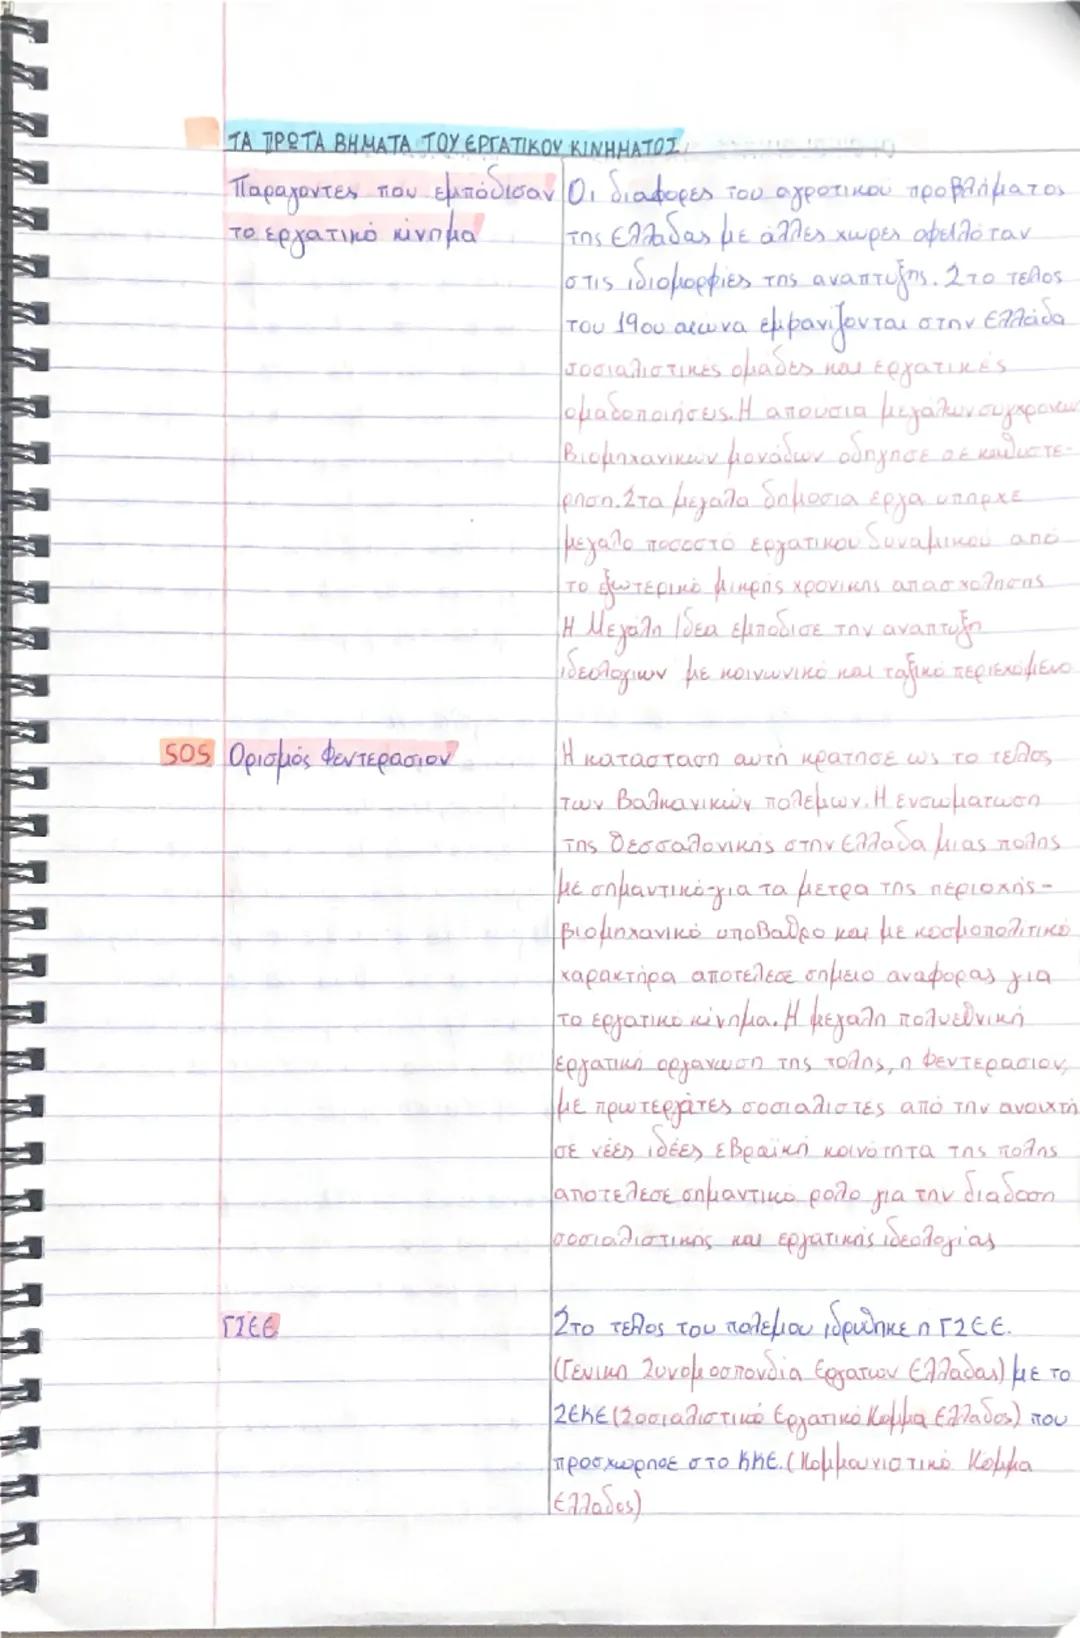 ΤΑ ΠΡΩΤΑ ΒΗΜΑΤΑ ΤΟΥ ΕΡΓΑΤΙΚΟΥ ΚΙΝΗΜΑΤΟΣ
Παραγοντες που εμπόδισαν
το εργατικό κίνημα
Οι διαφορες του αγροτικου προβλήματος
της Ελλαδας με άλλες χωρες οφειλόταν
στις ιδιομορφίες της αναπτυξης. Στο τελος
του 19ου αιωνα εμφανιζονται στην Ελλάδα
σοσιαλιστικές ομαδες και εργατικές
ομαδοποιήσεις. Η απουσια μεγάλων συγχρονων
Βιομηχανικων μονάδων οδηγησε σε καθυστε-
ρηση. Στα μεγαλα δημοσια εργα υπηρχε
μεγαλο ποσοστό εργατικου δυναμικού από
το εξωτερικό μικρής χρονικης απασχολησης
Η Μεγάλη Ιδεα εμποδισε την αναπτυξη
ιδεολογιων με κοινωνικό και ταξικό περιεχόμενο
SOS Ορισμός Φεντερασιον
Η κατασταση αυτή κρατησε ως το τελος
των Βαλκανικών πολεμων. Η ενσωματωση
της Θεσσαλονικης στην Ελλαδα μιας πολης
με σημαντικό-για τα μετρα της περιοχης-
βιομηχανικό υποβαθρο και με κοσμοπολιτικό
χαρακτήρα αποτέλεσε σημειο αναφορας για
το εργατικο κίνημα. Η μεγαλη πολυεθνική
εργατική οργανωση της πολης, η Φεντερασιον,
με πρωτεργάτες σοσιαλιστες από την ανοιχτή
σε νέες ιδέες εβραϊκή κοινότητα της πολης
αποτελεσε σημαντικο ρολο για την διαδοση
σοσιαλιστικης και εργατικής ιδεολογίας
ΓΣΕΕ
Στο τελος του πολεμου ιδρυθηκε η ΓΣΕΕ.
(Γενικη Συνομοσπονδία Εργατων Ελλαδας) με το
ΣΕΚΕ (Σοσιαλιστικό Εργατικό Κομμα Ελλαδος) που
προσχωρησε στο ΚΚΕ. (Κομμουνιστικό Κομμα
Ελλαδος)